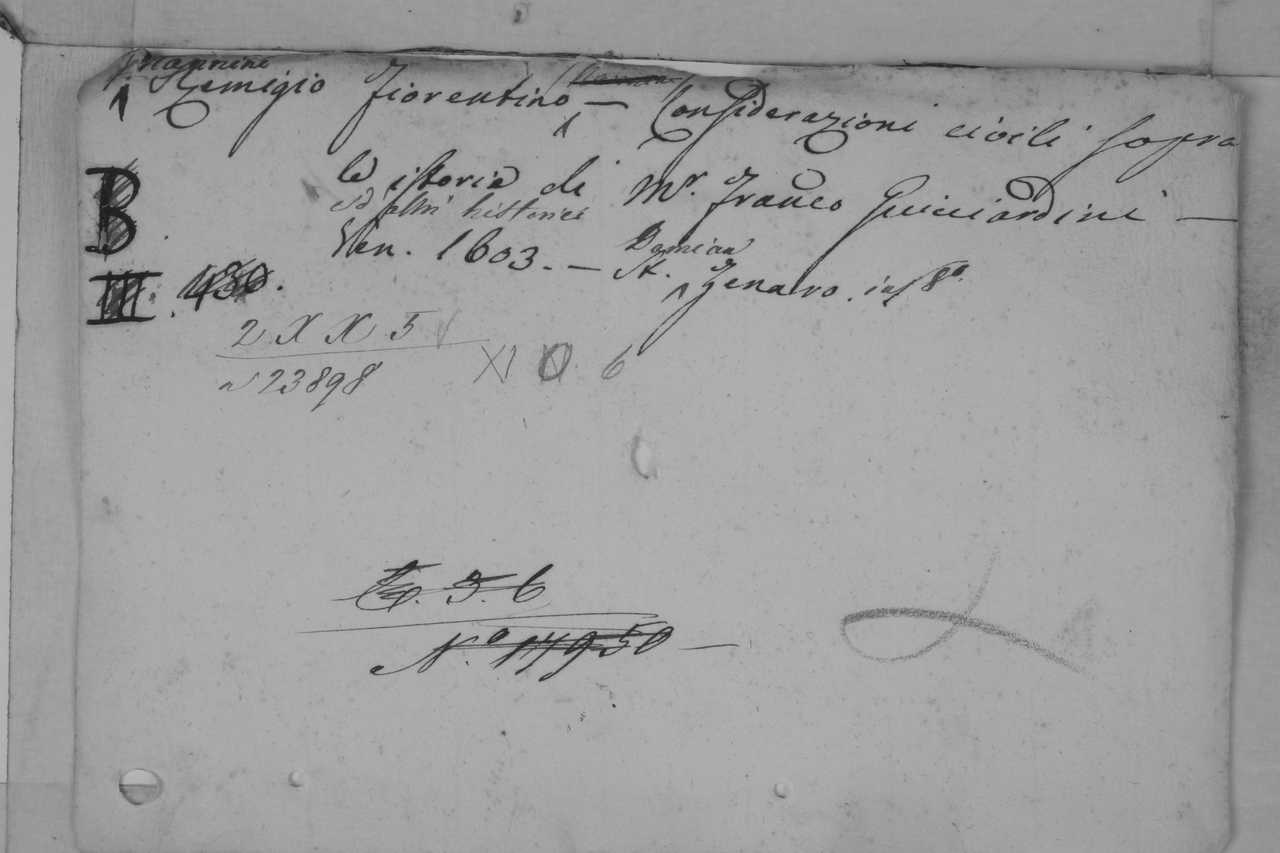 Nannini
Remigio Fiorentino — Considerazioni civili sopra
le istorie di Mr. Franco Guicciardini —
ed altri historici
Ven. 1603. — Damian
A. Zenaro. in 8°.
B
III. 430.
2 X X 5
n 23898
XI 0 6
5. 6
N.° 17950 —